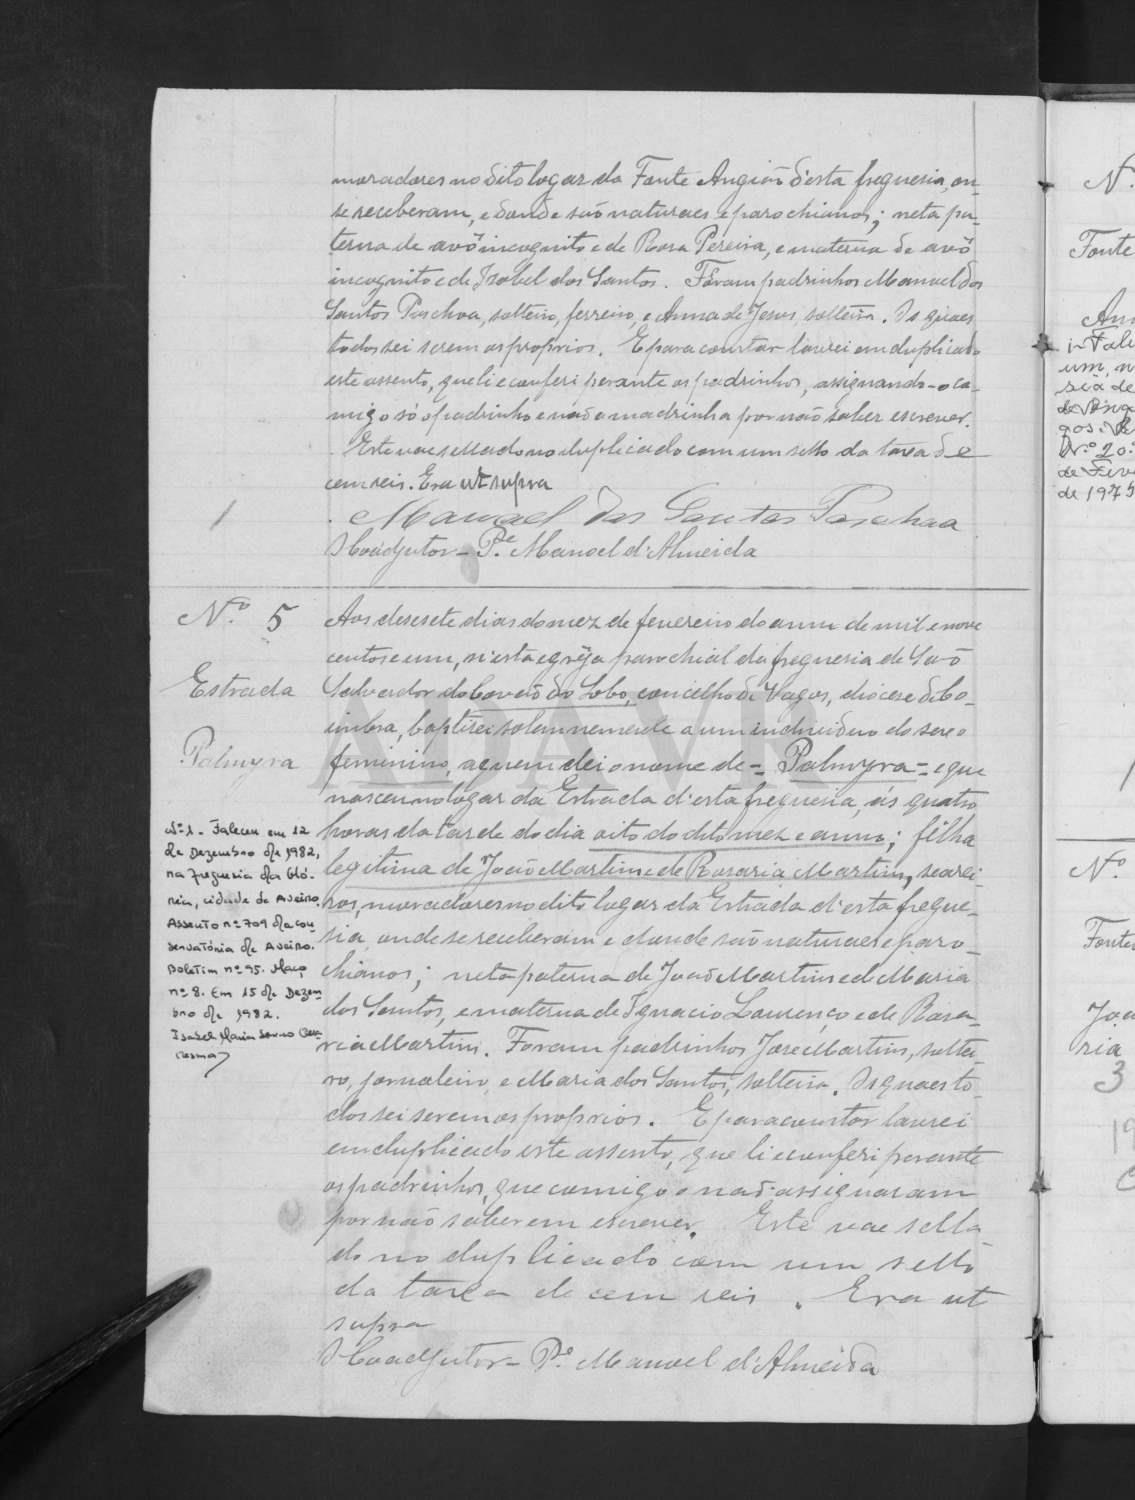 moradores no dito logar da Fonte Angião d'esta freguesia, on-
se receberam, e d'onde são naturaes e parochianos; neta pa-
terna de avô incognito e de Rosa Pereira, e materna de avô
incognito e de Isabel dos Santos. Foram padrinhos Manuel dos
Santos Paschoa, solteiro, ferreiro, e Anna de Jesus, solteira. Os quaes
todos sei serem os proprios. E para constar lavrei em duplicado
este assento, que li e conferi perante os padrinhos, assignando-o co-
migo só o padrinho e não a madrinha por não saber escrever.
Este vae sellado no duplicado com um sello da taxa de
cem reis. Era ut supra
1
Manoel dos Santos Paschoa
O Coadjutor - P.e Manoel d'Almeida
N.º 5
Estrada
Palmyra
Nº 1 - Faleceu em 12
de Dezembro de 1982,
na freguesia da Gló-
ria, cidade de Aveiro.
Assento nº 709 da con
servatória de Aveiro.
Boletim nº 95. Maço
nº 8. Em 15 de Dezem
bro de 1982.
Isabel Maria
Aos desesete dias do mez de fevereiro do anno de mil e nove
centos e um, n'esta egreja parochial da freguesia de São
Salvador do Covão do Lobo, concelho de Vagos, diocese de Co-
imbra, baptisei solemnemente a um individuo do sexo
feminino, a quem dei o nome de = Palmyra = e que
nasceu no logar da Estrada d'esta freguesia, ás quatro
horas da tarde do dia oito do dito mez e anno; filha
legitima de João Martins e de Rosaria Martins, seare-
iros, moradores no dito logar da Estrada d'esta fregue-
sia, onde se receberam e d'onde são naturaes e paro-
chianos; neta paterna de João Martins e de Maria
dos Santos, e materna de Ignacio Lourenço e de Rosa-
ria Martins. Foram padrinhos José Martins, soltei-
ro, jornaleiro, e Maria dos Santos, solteira. Os quaes to-
dos sei serem os proprios. E para constar lavrei
em duplicado este assento, que li e conferi perante
os padrinhos, que comigo o não assignaram
por não saberem escrever. Este vae sella
do no duplicado com um sello
da taxa de cem reis. Era ut
supra
O Coadjutor - P.e Manoel d'Almeida
ADAVR
N.º
Fonte
de 1975
Nº
Fonte
Joa
ria
3